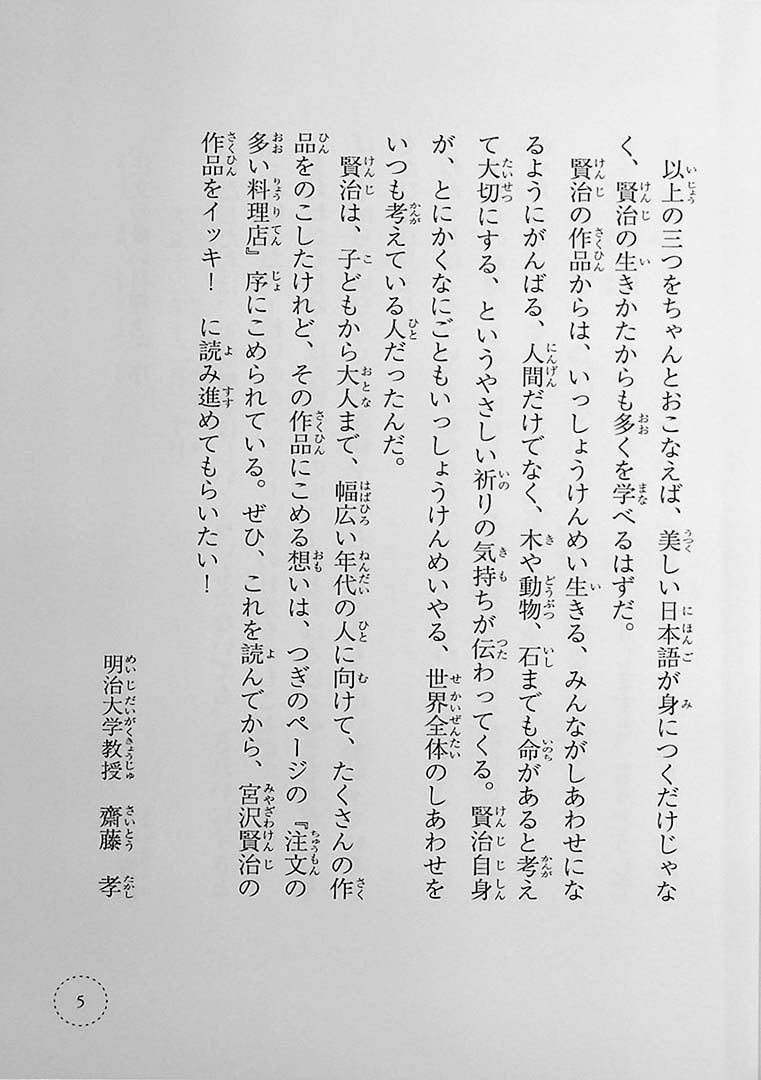 以上の三つをちゃんとおこなえば、美しい日本語が身につくだけじゃな
く、賢治の生きかたからも多くを学べるはずだ。
賢治の作品からは、いっしょうけんめい生きる、みんながしあわせにな
るようにがんばる、人間だけでなく、木や動物、石までも命があると考え
て大切にする、というやさしい祈りの気持ちが伝わってくる。賢治自身
が、とにかくなにごともいっしょうけんめいやる、世界全体のしあわせを
いつも考えている人だったんだ。
賢治は、子どもから大人まで、幅広い年代の人に向けて、たくさんの作
品をのこしたけれど、その作品にこめる想いは、つぎのページの『注文の
多い料理店』序にこめられている。ぜひ、これを読んでから、宮沢賢治の
作品をイッキ！　に読み進めてもらいたい！
明治大学教授　齋藤　孝
5